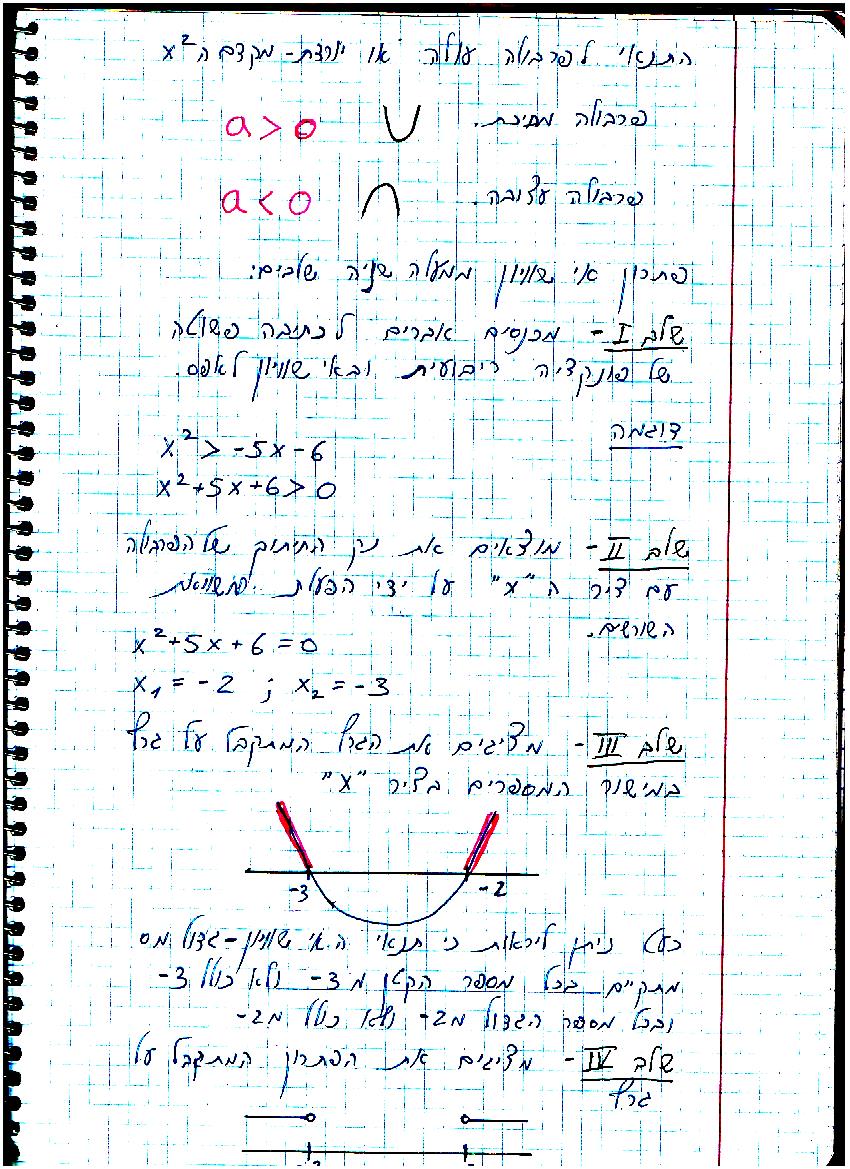 התנאי לפרבולה עולה או יורדת - מקדם ה x²
פרבולה מחייכת. a > 0
פרבולה עצובה. a < 0
פתרון אי שוויון ממעלה שניה שלבים:
שלב I - מכנסים אברים לכתיבה פשוטה
של פונקציה ריבועית ובאי שוויון לאפס.
דוגמה
x² > -5x-6
x²+5x+6 > 0
שלב II - מוצאים את נק החיתוך של הפרבולה
עם ציר ה "x" על ידי הפעלת משוואת
השורשים.
x²+5x+6=0
x₁ = -2 ; x₂ = -3
שלב III - מציגים את הגרף המתקבל על גרף
במישור המספרים בציר "x"
-3 -2
כעת ניתן לראות כי תנאי האי שוויון - גדול מ 0
מתקיים בכל מספר הקטן מ 3- ולא כולל 3-
ובכל מספר הגדול מ 2- ולא כולל מ 2-
שלב IV - מציגים את הפתרון המתקבל על
גרף